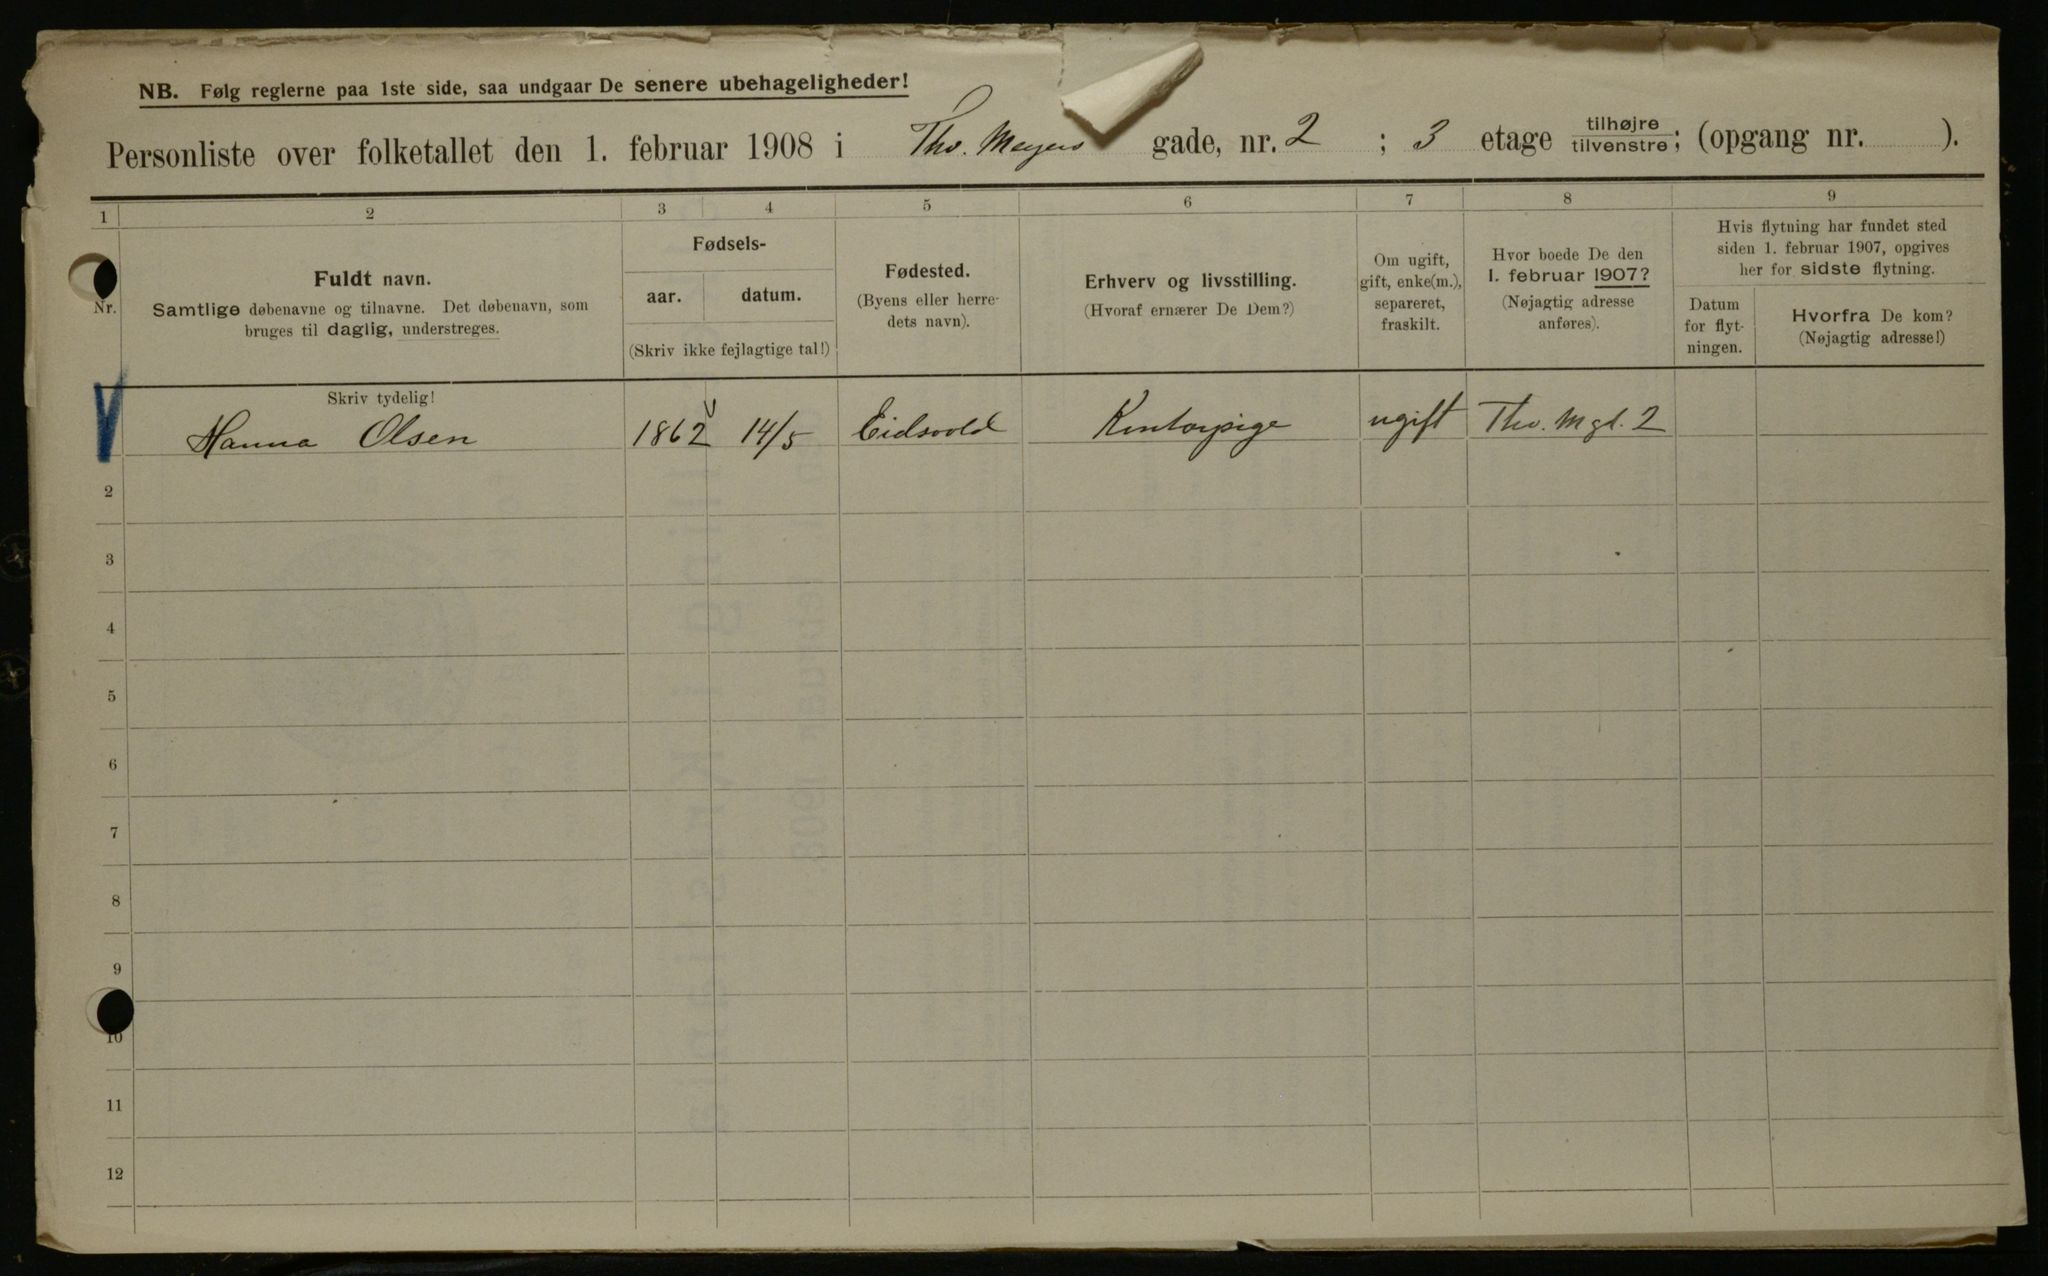 NB. Følg reglerne paa 1ste side, saa undgaar De senere ubehageligheder!
Personliste over folketallet den 1. februar 1908 i Thv. Meyers gade, nr. 2 ; 3 etage tilhøjre/tilvenstre; (opgang nr. ).
1 2 3 4 5 6 7 8 9
Nr.
Fuldt navn.
Samtlige døbenavne og tilnavne. Det døbenavn, som
bruges til daglig, understreges.
Fødsels-
aar. datum.
(Skriv ikke fejlagtige tal!)
Fødested.
(Byens eller herre-
dets navn).
Erhverv og livsstilling.
(Hvoraf ernærer De Dem?)
Om ugift,
gift, enke(m.),
separeret,
fraskilt.
Hvor boede De den
1. februar 1907?
(Nøjagtig adresse
anføres).
Hvis flytning har fundet sted
siden 1. februar 1907, opgives
her for sidste flytning.
Datum
for flyt-
ningen.
Hvorfra De kom?
(Nøjagtig adresse!)
Skriv tydelig!
Hanna Olsen 1862 14/5 Eidsvold Kontorpige ugift Thv. Mgt. 2
2
3
4
5
6
7
8
9
10
11
12